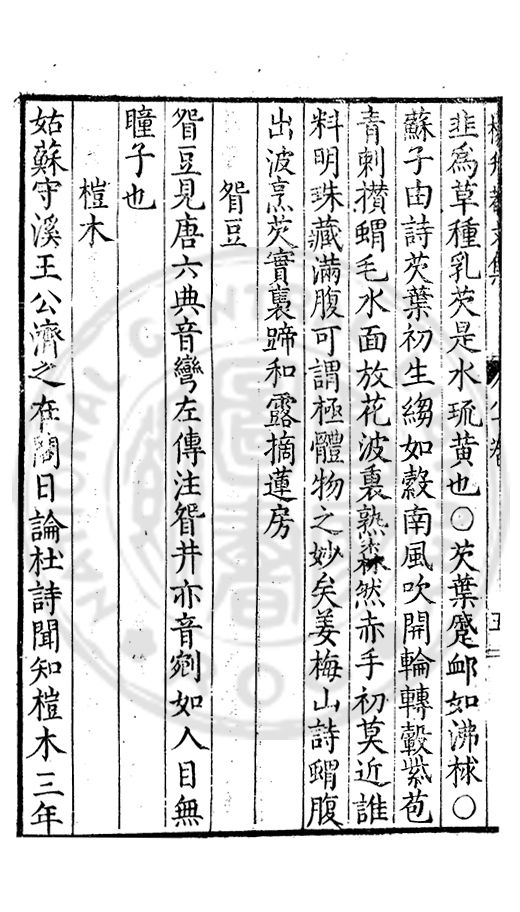 韭爲草種乳芡是水琉黄也〇芡葉蹙衂如沸梂〇
蘇子由詩芡葉初生縐如縠南風吹開輪轉轂紫苞
青刺攅蝟毛水面放花波裏熟森然赤手初莫近誰
料明珠藏滿腹可謂極體物之妙矣姜梅山詩蝟腹
出波烹芡實裏蹄和露摘蓮房
眢豆
眢豆見唐六典音彎左傳注眢井亦音剜如人目無
瞳子也
榿木
姑蘇守溪王公濟之在閣日論杜詩聞知榿木三年